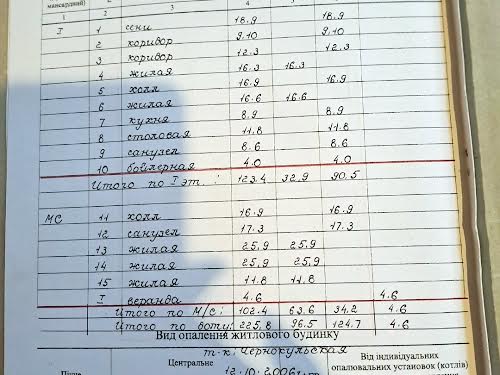 мансардний)
1 2 3
I 1 сени 18.9 18.9
2 коридор 9,10 9,10
3 коридор 12.3 12.3
4 жилая 16.3 16.3
5 холл 16.9 16.9
6 жилая 16.6 16.6
7 кухня 8.9 8.9
8 столовая 11.8 11.8
9 санузел 8.6 8.6
10 бойлерная 4.0 4.0
Итого по I эт.: 123.4 32,9 90.5
МС 11 холл 16.9 16.9
12 санузел 17.3 17.3
13 жилая 25,9 25,9
14 жилая 25,9 25,9
15 жилая 11.8 11.8
I веранда 4.6 4.6
Итого по М/С: 102.4 63.6 34.2 4.6
Итого по дому: 225,8 96.5 124.7 4.6
Вид опалення житлового будинку
т.к. Чернокульская
Центральне
Від індивідуальних
опалювальних установок (котлів)
12.10.2006г.